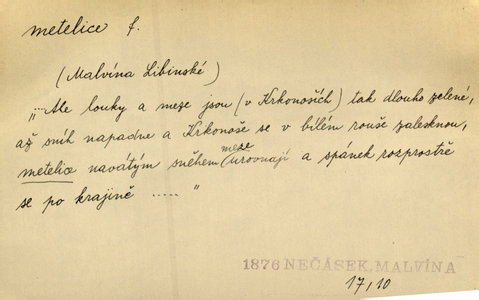 metelice f.
(Malvína Libinské)
„... Ale louky a meze jsou (v Krkonoších) tak dlouho zelené,
až sníh napadne a Krkonoše se v bílém rouše zalesknou,
metelice navátým sněhem meze urovnají a spánek rozprostře
se po krajině ..... "
1876 NEČÁSEK, MALVÍNA
17, 10